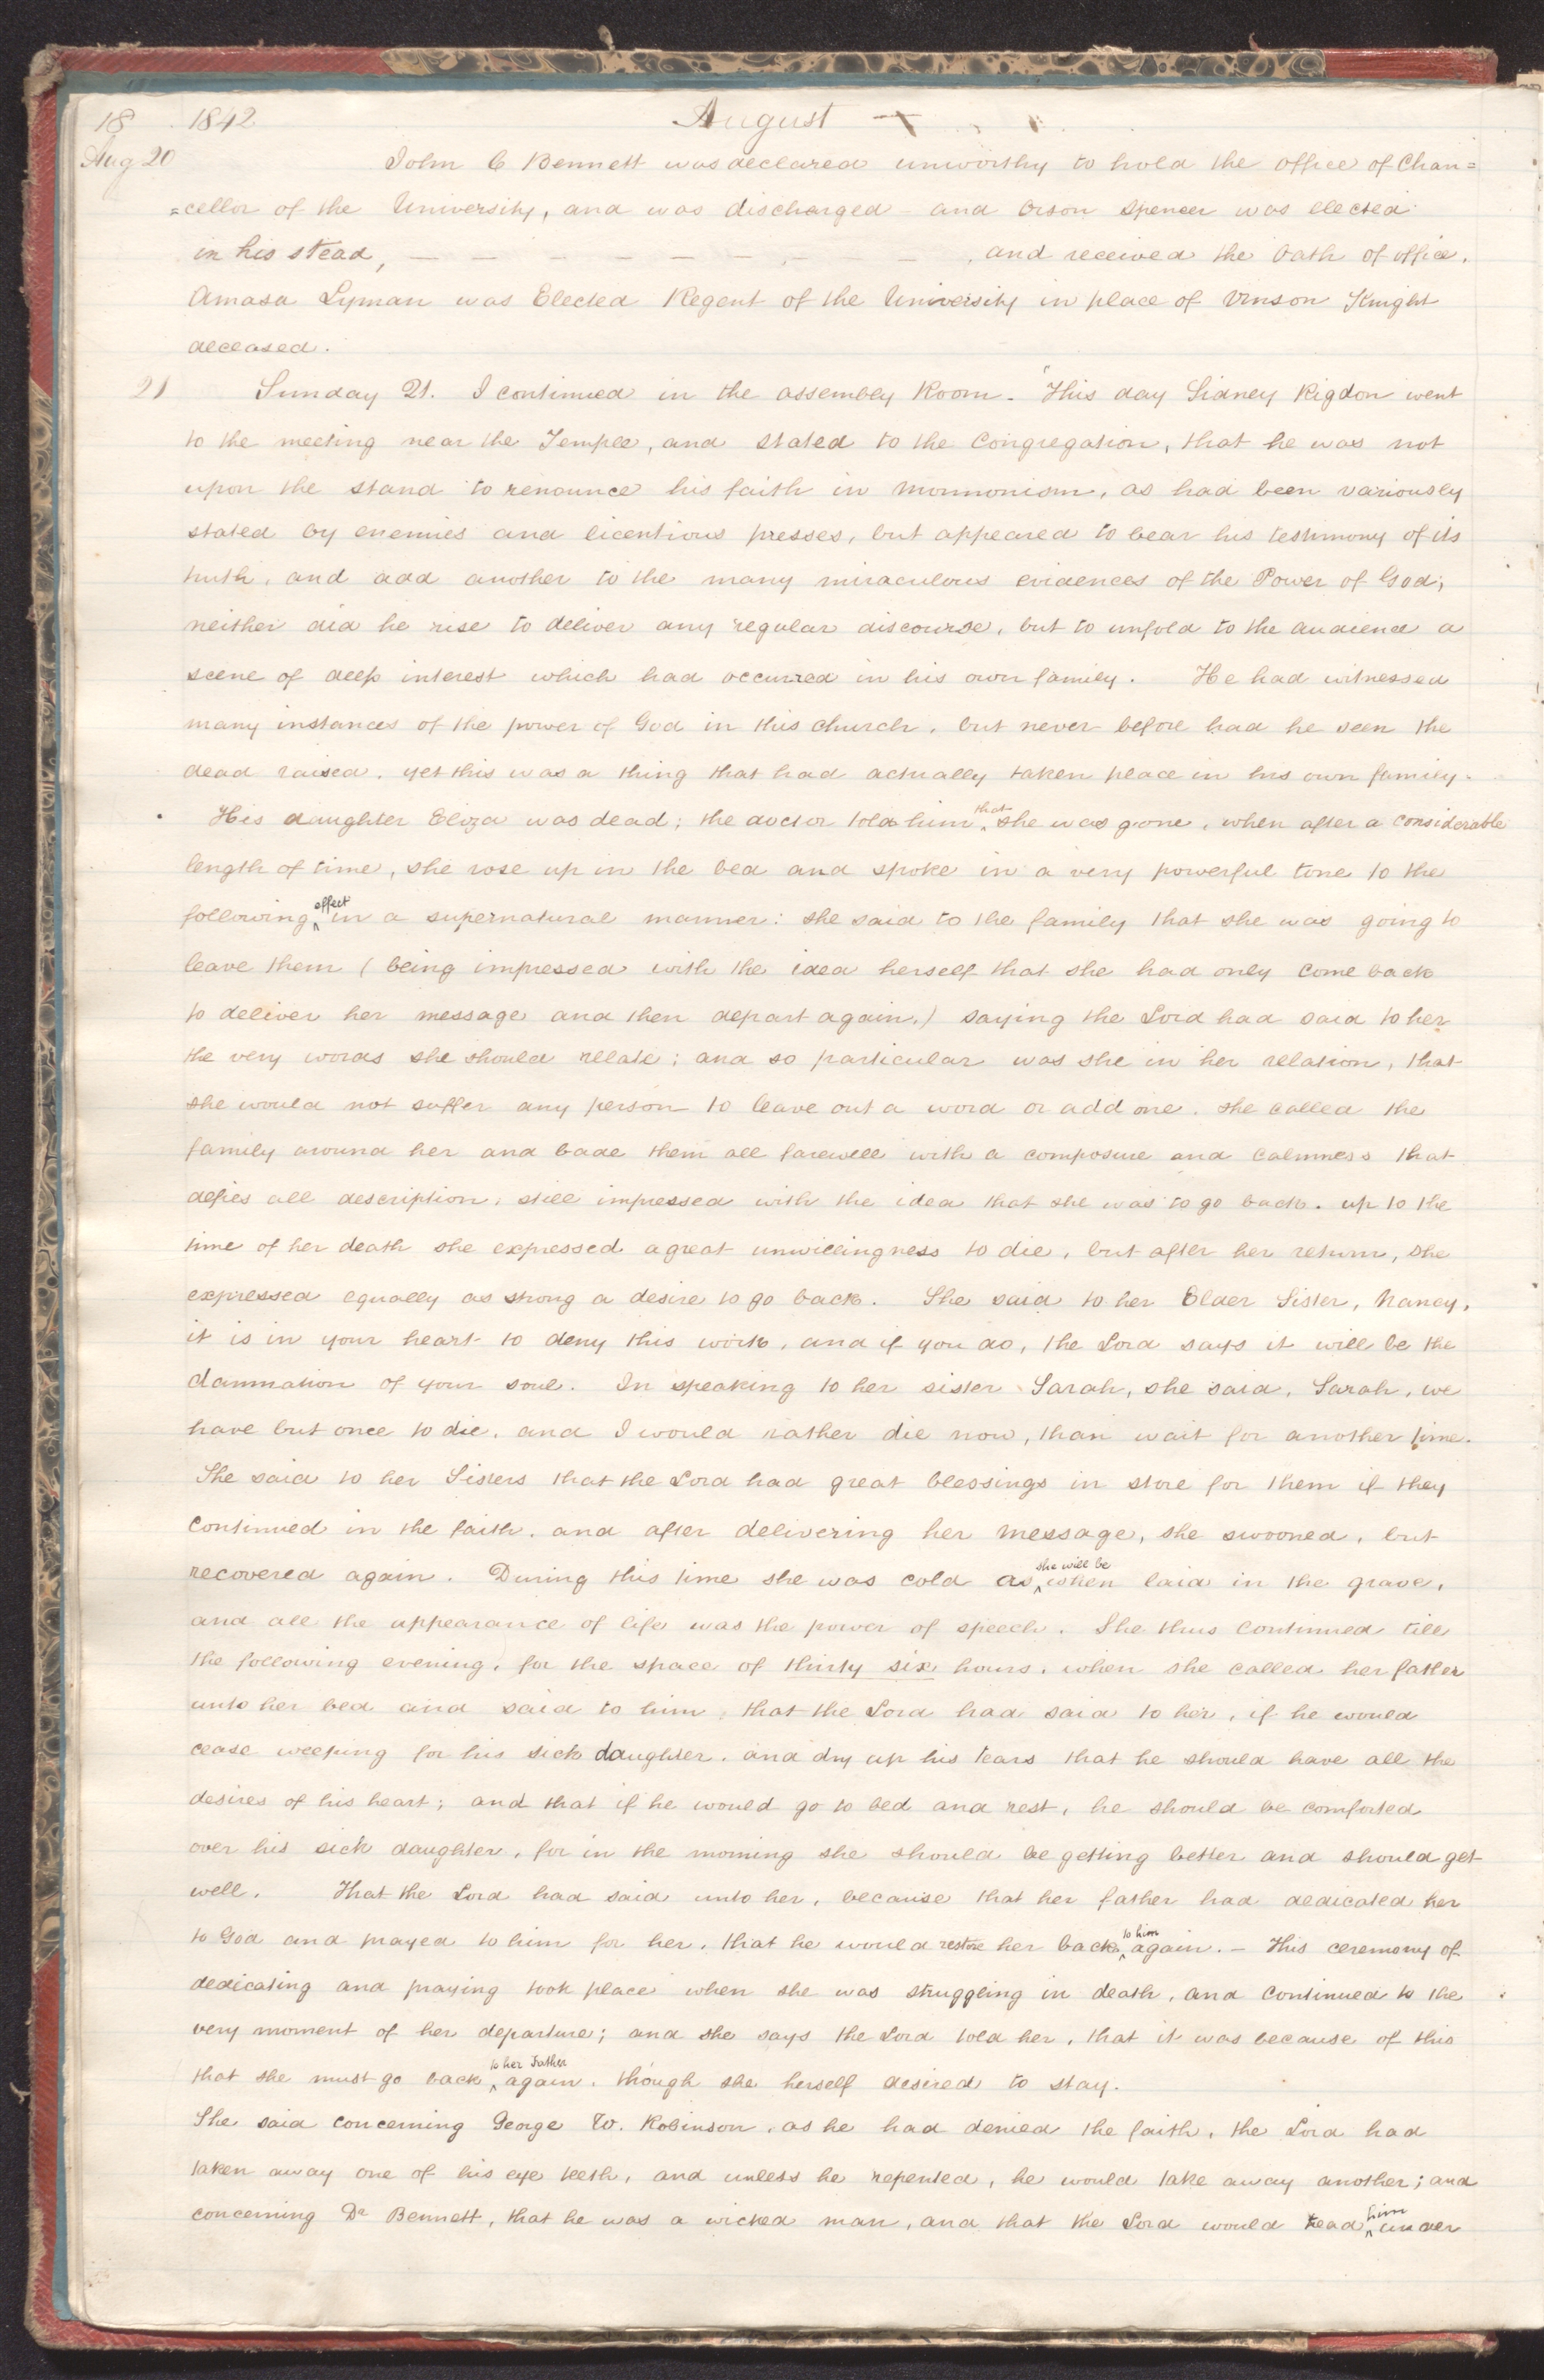 18 1842 August
Aug 20 John C Bennett was declared unworthy to hold the office of Chan=
=cellor of the University, and was discharged – and Orson Spencer was elected
in his stead, — — — — — — — — — , and received the oath of office.
Amasa Lyman was Elected Regent of the University in place of Vinson Knight
deceased.
21 Sunday 21. I continued in the assembly Room. This day Sidney Rigdon went
to the meeting near the Temple, and stated to the Congregation, that he was not
upon the stand to renounce his faith in Mormonism, as had been variously
stated by enemies and licentious presses, but appeared to bear his testimony of its
truth, and add another to the many miraculous evidences of the Power of God;
neither did he rise to deliver any regular discourse, but to unfold to the audience a
scene of deep interest which had occurred in his own family. He had witnessed
many instances of the power of God in this church, but never before had he seen the
dead raised, yet this was a thing that had actually taken place in his own family.
His daughter Eliza was dead; the doctor told him ^that she was gone, when after a considerable
length of time, she rose up in the bed and spoke in a very powerful tone to the
following ^effect in a supernatural manner: she said to the family that she was going to
leave them (being impressed with the idea herself that she had only come back
to deliver her message and then depart again,) saying the Lord had said to her
the very words she should relate; and so particular was she in her relation, that
she would not suffer any person to leave out a word or add one. she called the
family around her and bade them all farewell with a composure and calmness that
defies all description, still impressed with the idea that she was to go back. up to the
time of her death she expressed a great unwillingness to die, but after her return, she
expressed equally as strong a desire to go back. She said to her Elder Sister, Nancy,
it is in your heart to deny this work, and if you do, the Lord says it will be the
damnation of your soul. In speaking to her sister Sarah, she said, Sarah, we
have but once to die, and I would rather die now, than wait for another time.
She said to her Sisters that the Lord had great blessings in store for them if they
continued in the faith, and after delivering her message, she swooned, but
recovered again. During this time she was cold as ^she will be when laid in the grave,
and all the appearance of life was the power of speech. She thus continued till
the following evening, for the space of thirty six hours, when she called her father
unto her bed and said to him, that the Lord had said to her, if he would
cease weeping for his sick daughter, and dry up his tears that he should have all the
desires of his heart; and that if he would go to bed and rest, he should be comforted
over his sick daughter, for in the morning she should be getting better and should get
well. That the Lord had said unto her, because that her father had dedicated her
to God and prayed to him for her, that he would restore her back ^to him again. — This ceremony of
dedicating and praying took place when she was struggling in death, and continued to the
very moment of her departure; and she says the Lord told her, that it was because of this
that she must go back ^to her Father again, though she herself desired to stay.
She said concerning George W. Robinson, as he had denied the faith, the Lord had
taken away one of his eye teeth, and unless he repented, he would take away another; and
concerning Dr Bennett, that he was a wicked man, and that the Lord would tread ^him under